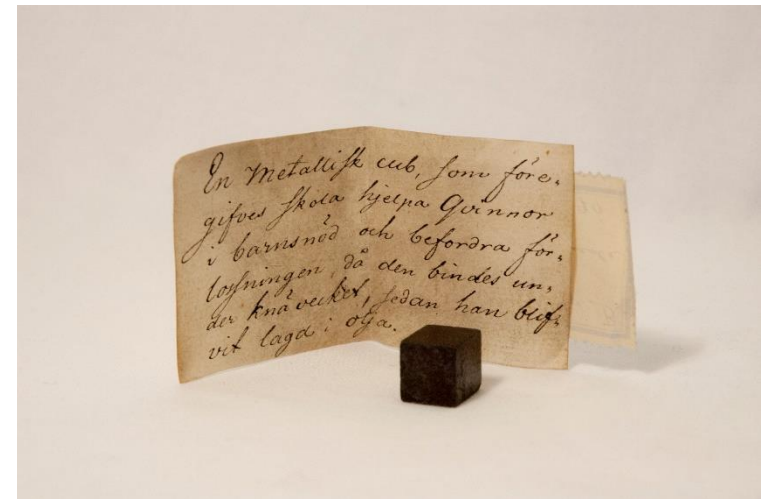 En Metallisk cub, som före-
gifves skola hjelpa Qvinnor
i barnsnöd och befordra för-
lossningen, då den bindes un-
der knävecket, sedan han blif-
vit lagd i olja.